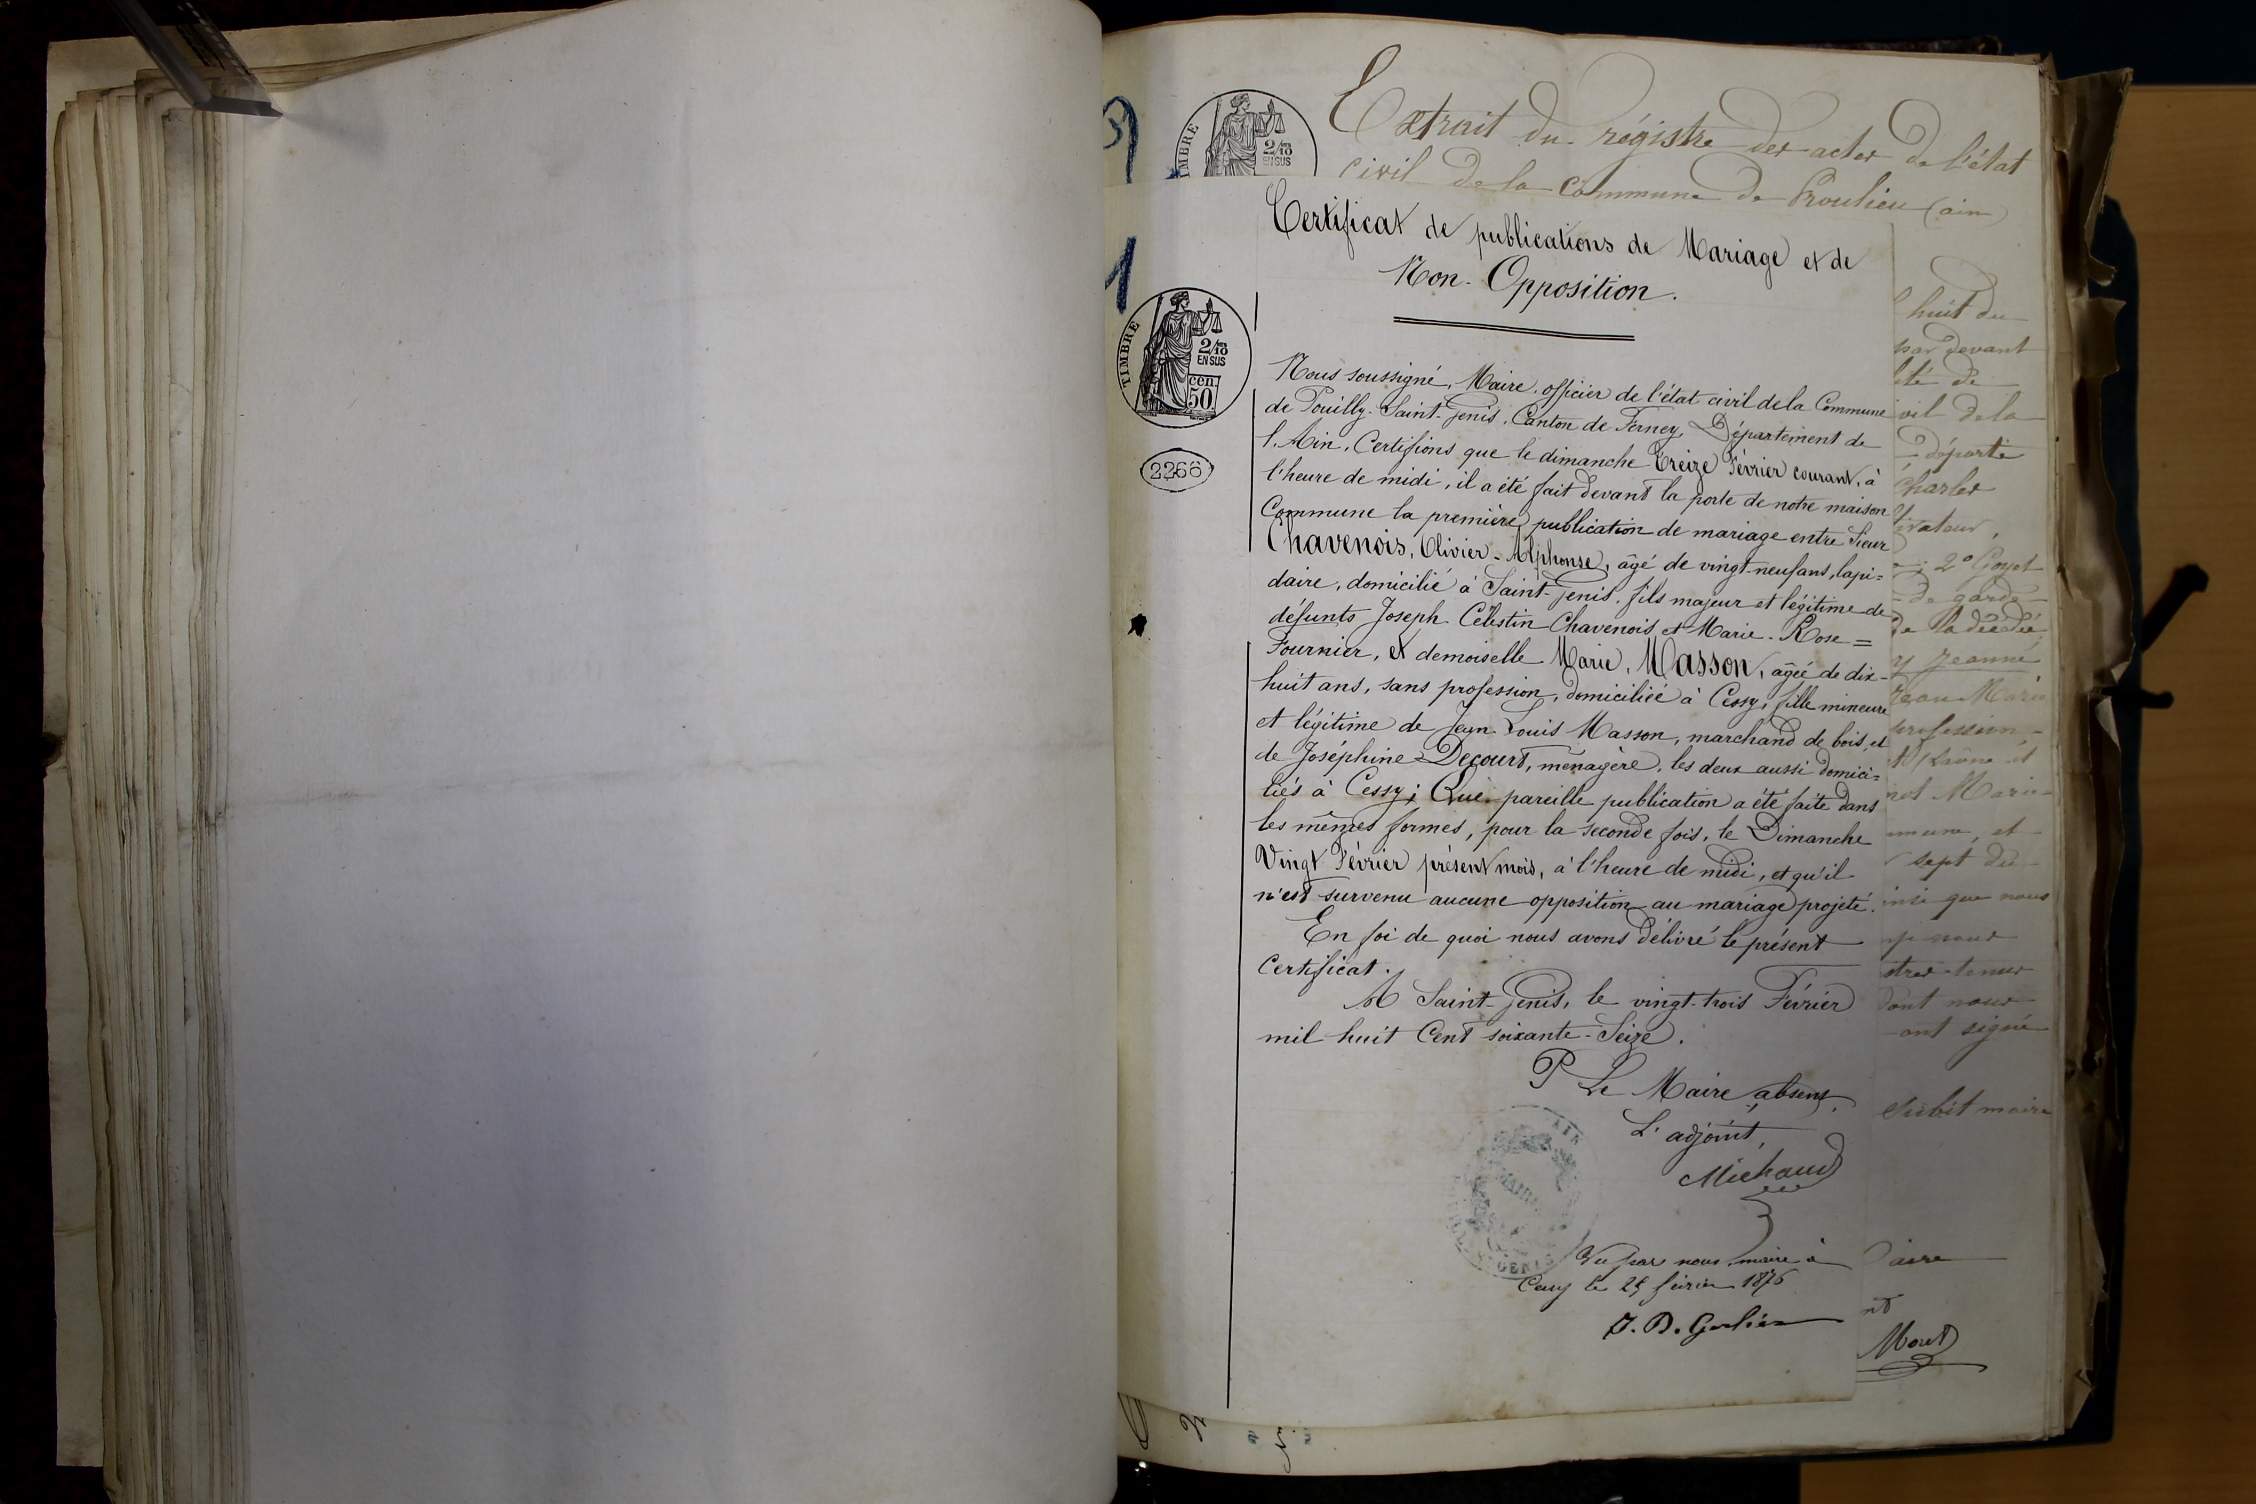 Extrait du régistre des actes de l'état
civil de la commune de Proulieu (ain)
TIMBRE
2/10
EN SUS
Certificat de publications de Mariage et de
Non-Opposition.
TIMBRE
2/10
EN SUS
cen.
50
2266
Nous soussigné, Maire, officier de l'état civil de la Commune
de Pouilly-Saint-Genis, Canton de Ferney, Département de
l'Ain, Certifions que le dimanche treize Février courant, à
l'heure de midi, il a été fait devant la porte de notre maison
Commune la première publication de mariage entre Sieur
Chavenois, Olivier-Alphonse, âgé de vingt-neuf ans, lapi=
daire, domicilié à Saint-Genis, fils majeur et légitime de
défunts Joseph-Célestin Chavenois et Marie-Rose=
Fournier, et demoiselle Marie, Masson, agée de dix-
huit ans, sans profession, domiciliée à Cessy, fille mineure
et légitime de Jean-Louis Masson, marchand de bois, et
de Joséphine Decourt, ménagère, les deux aussi domici=
liés à Cessy; Que pareille publication a été faite dans
les mêmes formes, pour la seconde fois, le Dimanche
Vingt Février présent mois, à l'heure de midi, et qu'il
n'est survenu aucune opposition au mariage projeté.
En foi de quoi nous avons délivré le présent
Certificat.
A Saint-Genis, le vingt-trois Février
mil huit Cent soixante-Seize.
P Le Maire absent,
L'adjoint,
Michaud
Vu par nous maire à
Cessy le 25 février 1876
huit du
par devant
té de
vil de la
départe
Charles
tivateur,
2° Goyet
de garde
de la décédée
y Jeanne
Jean Marie
profession,
Rhône et
Marie
mmune, et
sept du
insi que nous
nous
stres tenus
dont nous
ont signé
maire
aire
Moret